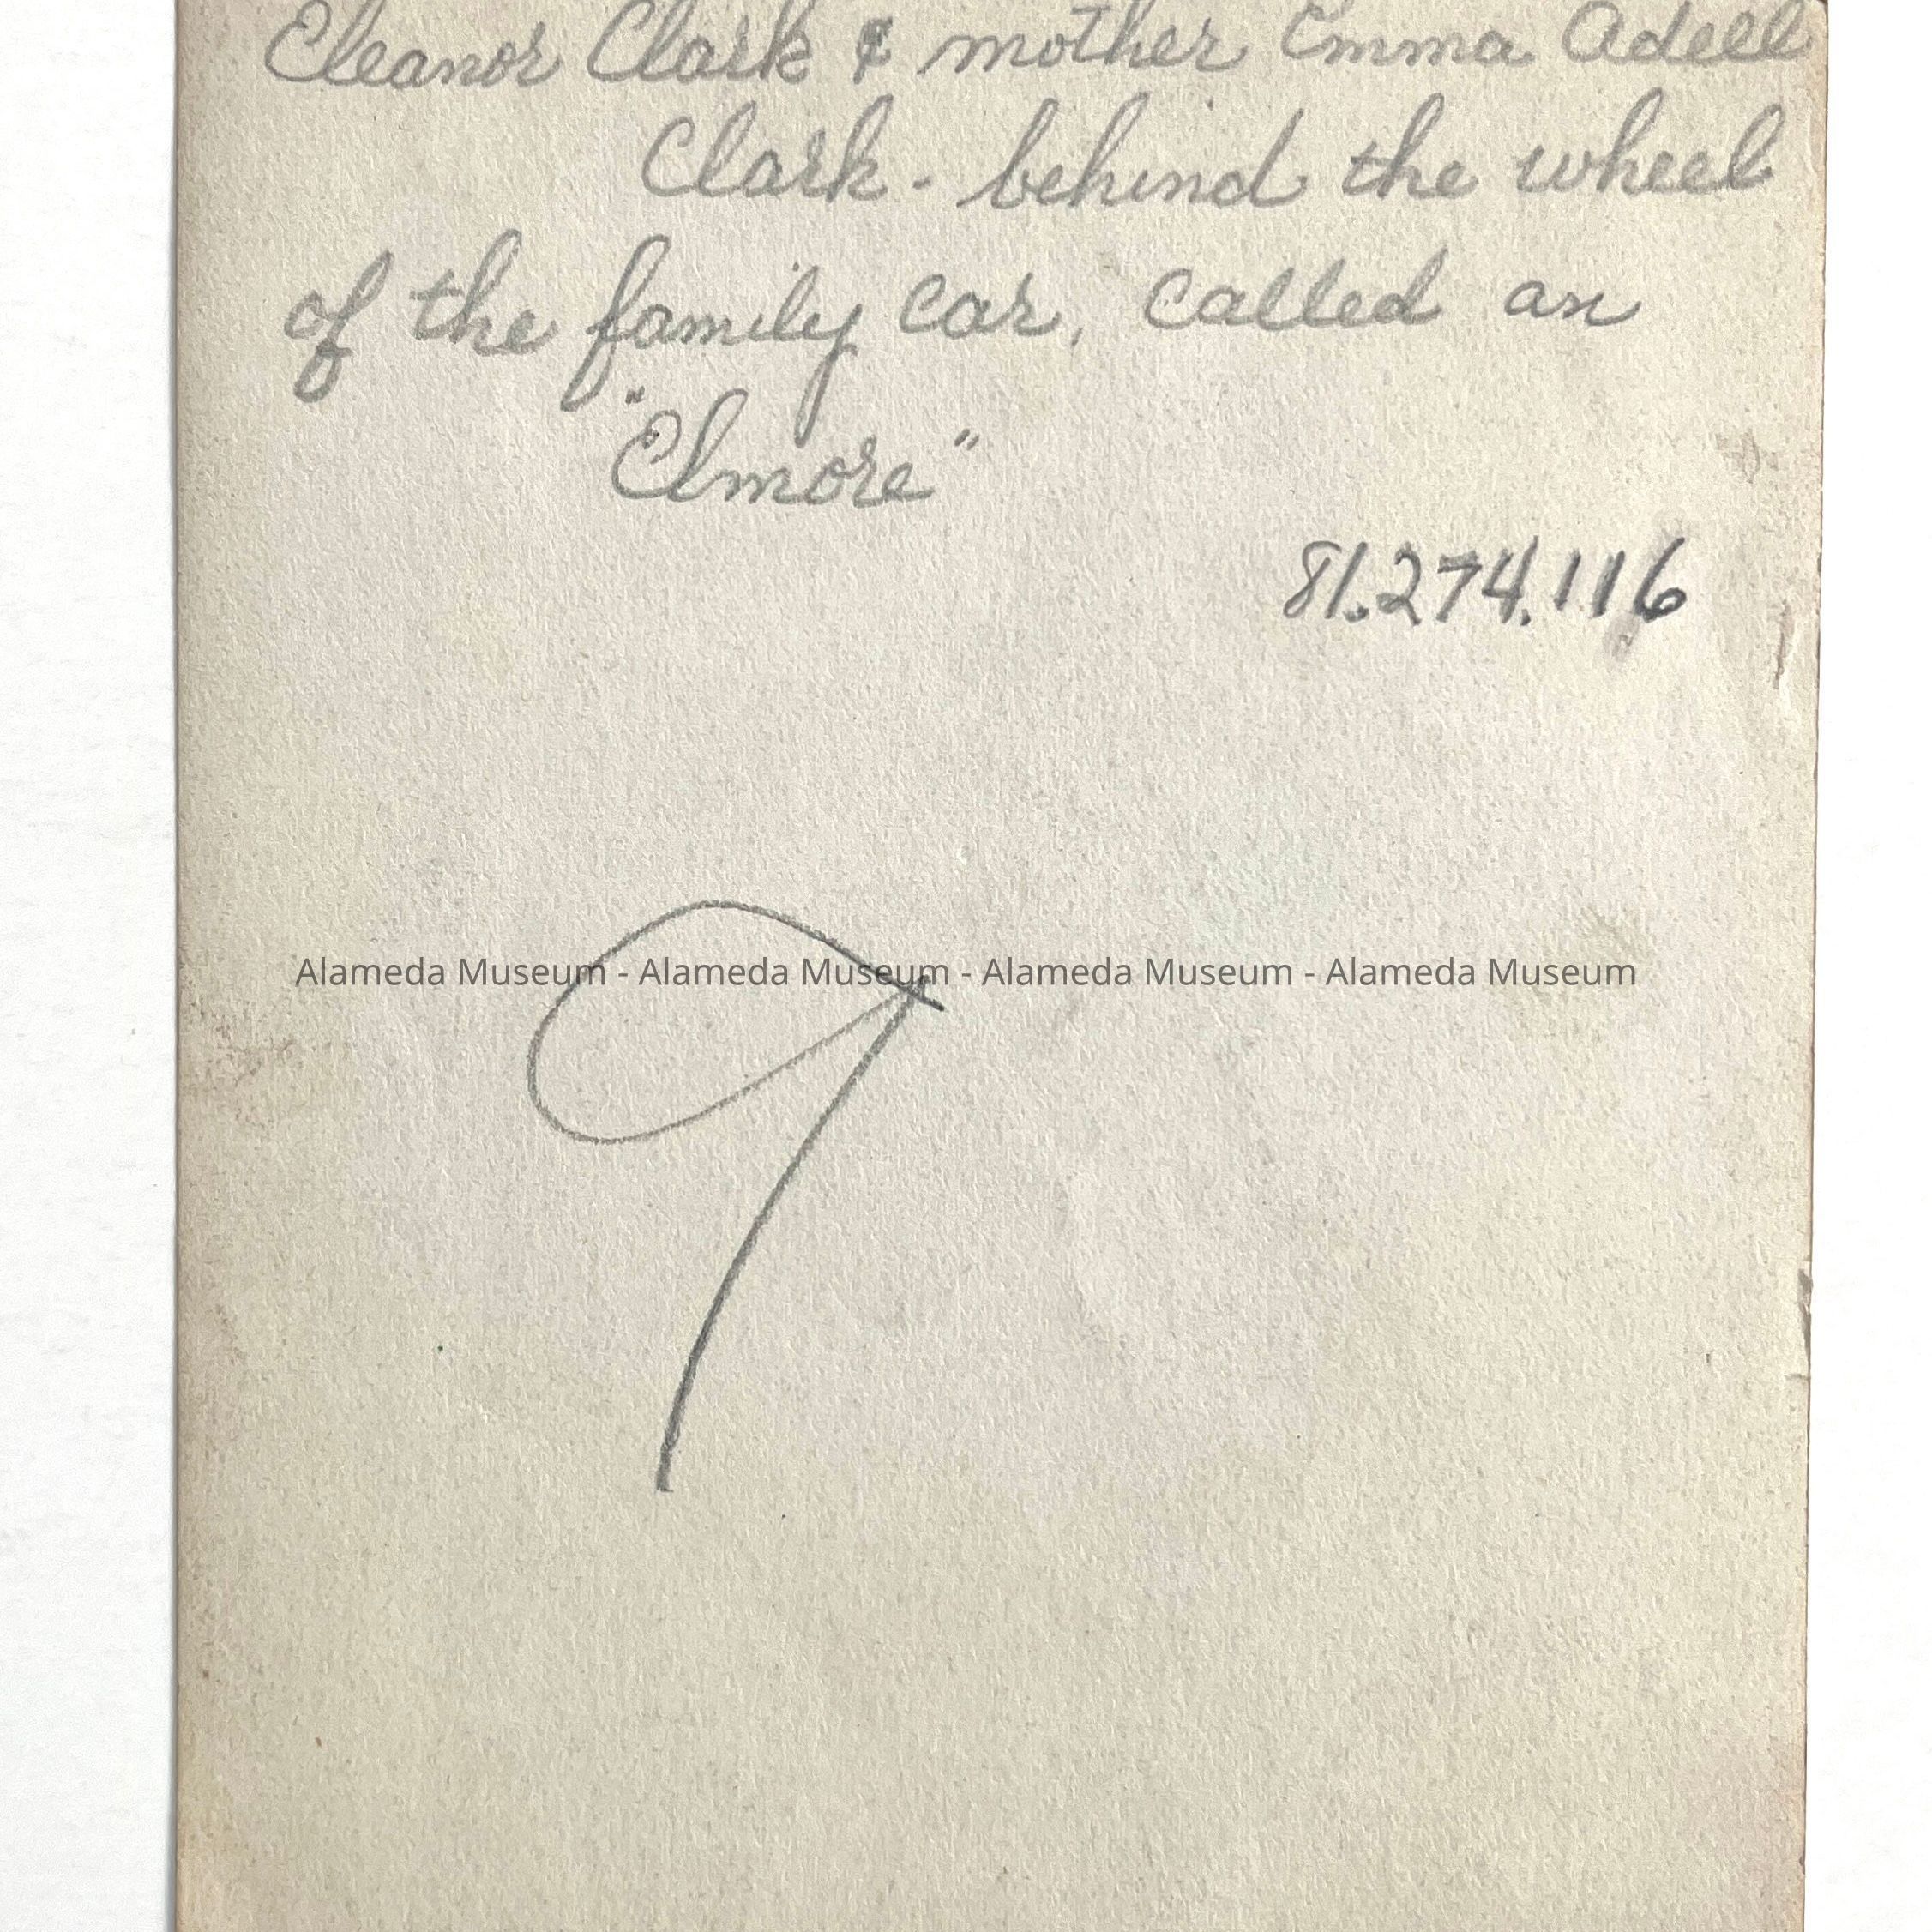 Eleanor Clark & mother Emma Adell
Clark - behind the wheel
of the family car, called an
"Elmore"
81.274.116
Alameda Museum - Alameda Museum - Alameda Museum - Alameda Museum
9